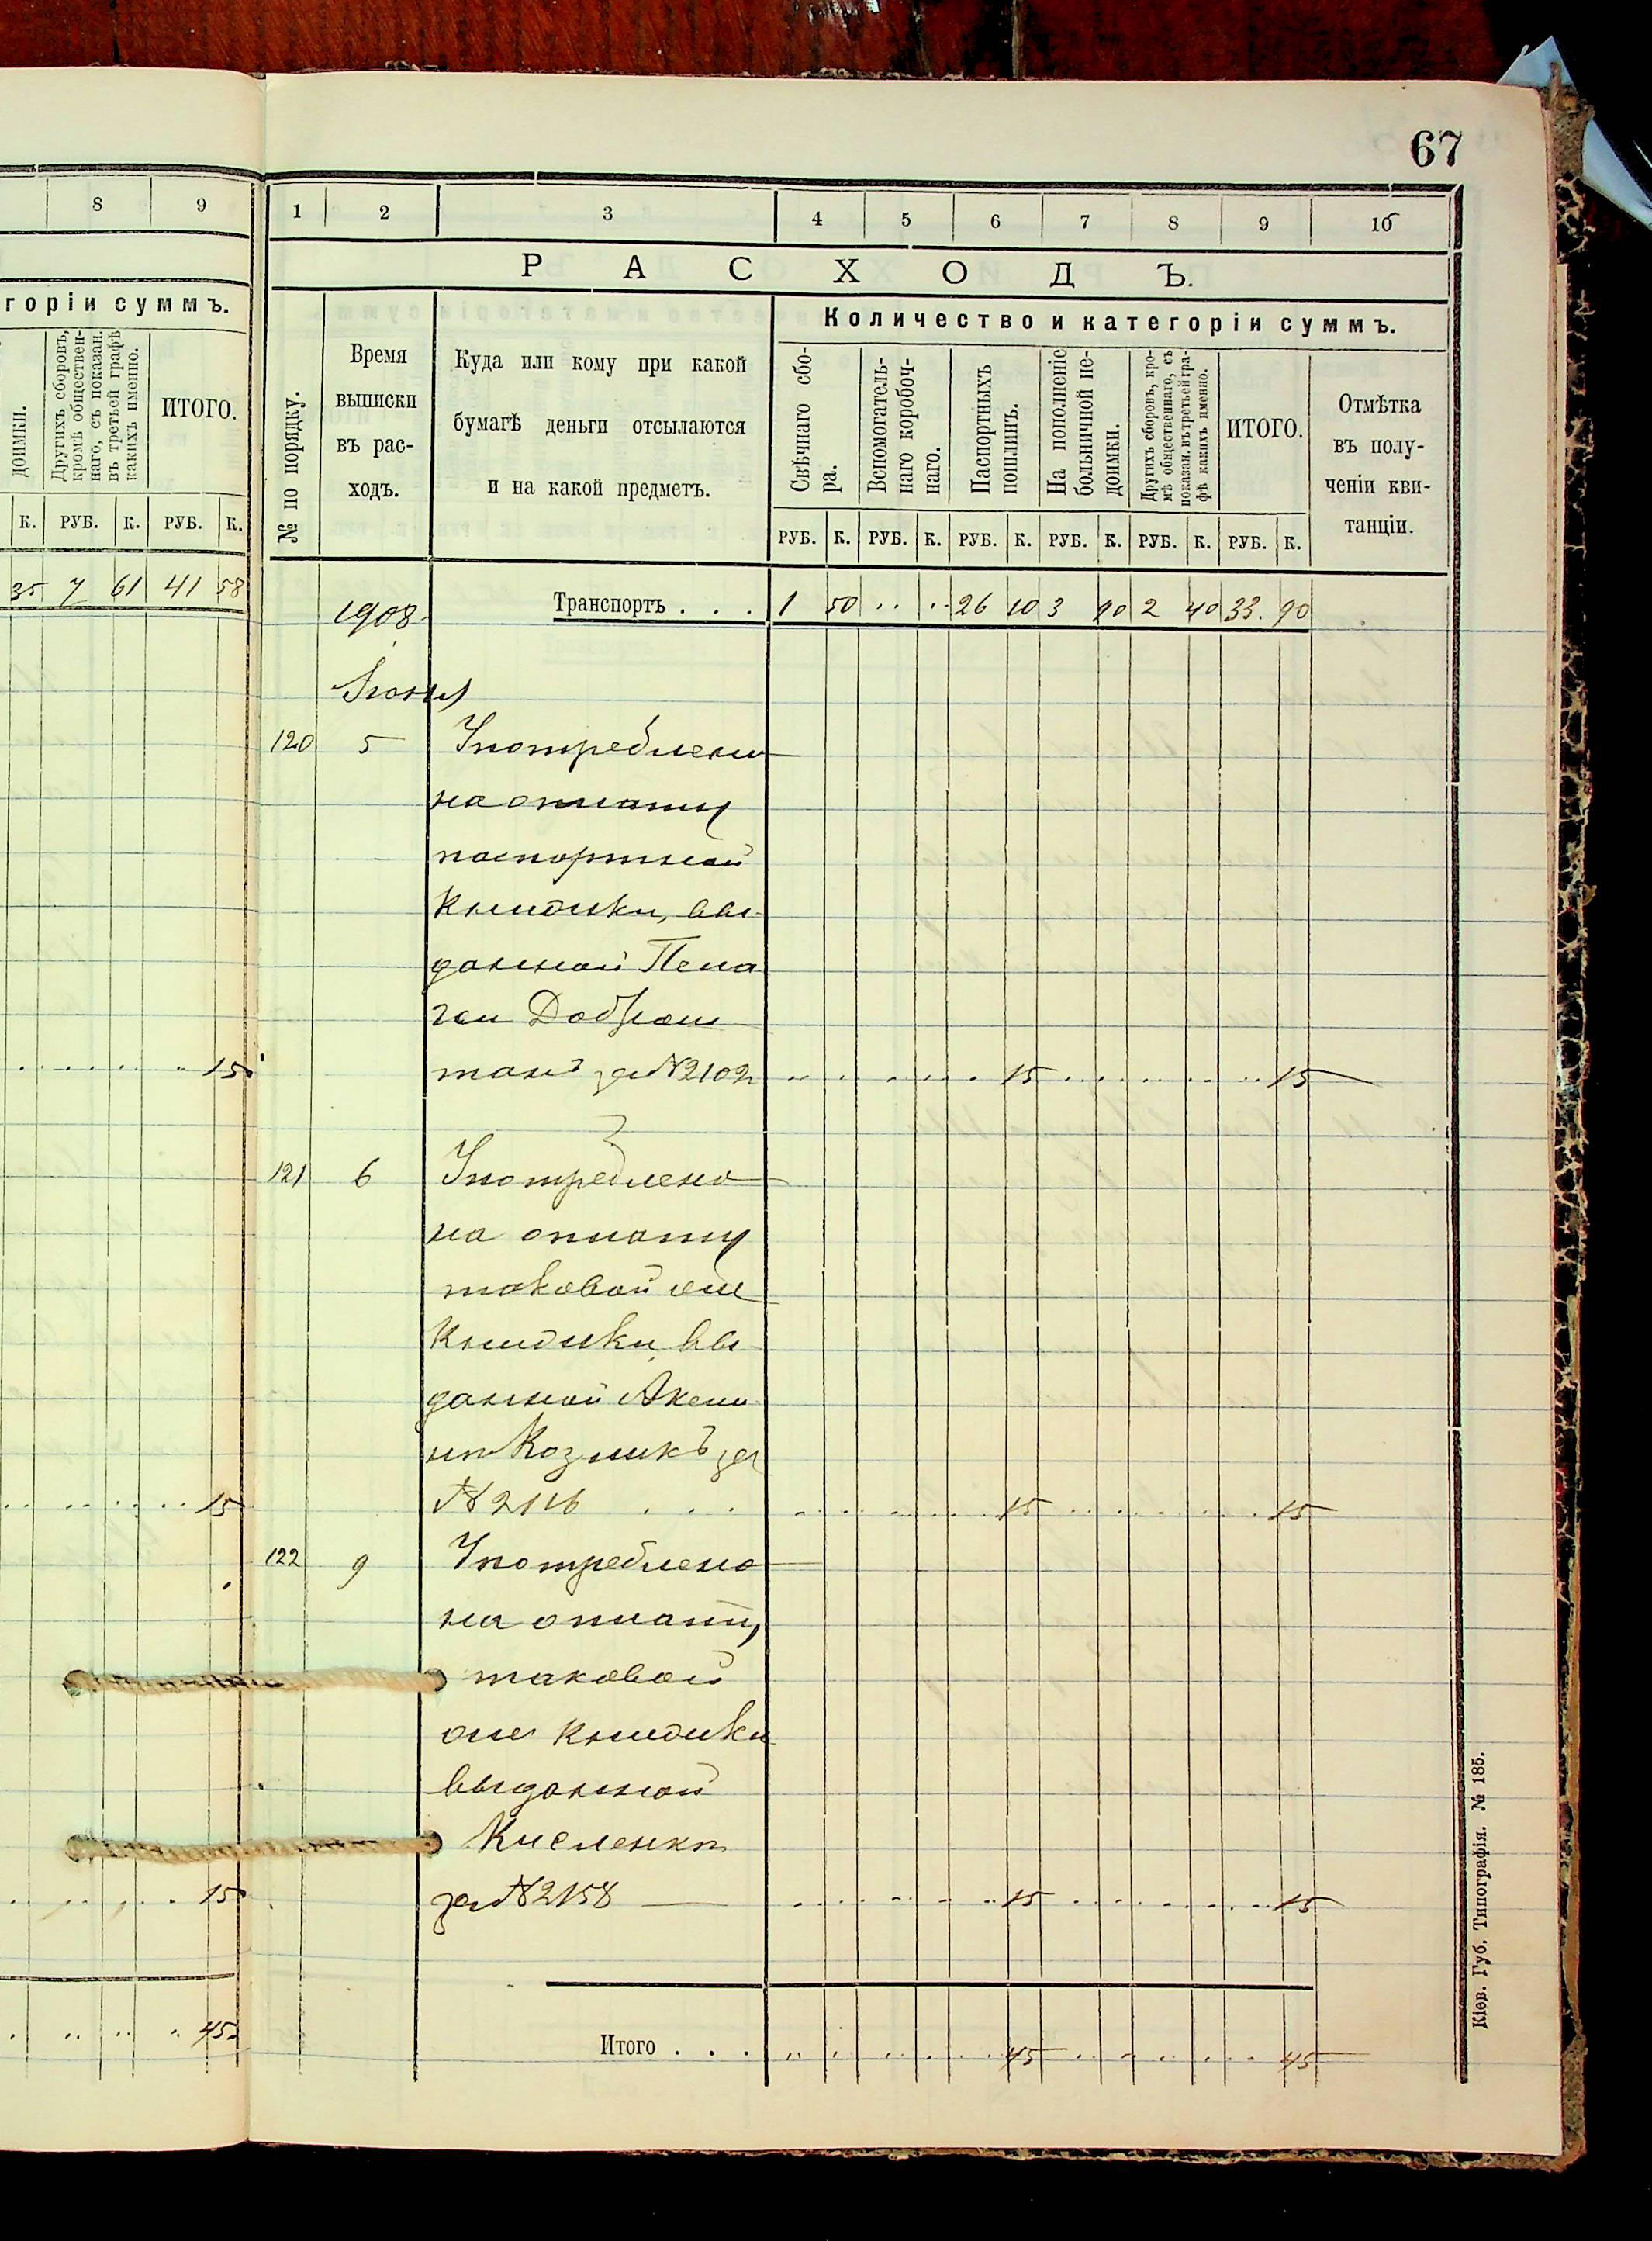 67
8 9
горіи суммъ.
доимки.
Другихъ сборовъ,
кромѣ обществен-
наго, съ показан.
въ третьей графѣ
какихъ именно.
ИТОГО.
К. РУБ. К. РУБ. К.
35 7 61 41 58
15
15
15
45
1 2 3 4 5 6 7 8 9 10
РАСХОДЪ.
№ по порядку.
Время
выписки
въ рас-
ходъ.
Куда или кому при какой
бумагѣ деньги отсылаются
и на какой предметъ.
Количество и категоріи суммъ.
Свѣчнаго сбо-
ра.
Вспомогатель-
наго коробоч-
наго.
Паспортныхъ
пошлинъ.
На пополненіе
больничной не-
доимки.
Другихъ сборовъ, кро-
мѣ общественнаго, съ
показан. въ третьей гра-
фѣ какихъ именно.
ИТОГО.
Отмѣтка
въ полу-
ченіи кви-
танціи.
РУБ. К. РУБ. К. РУБ. К. РУБ. К. РУБ. К. РУБ. К.
1908
Транспортъ . . . 1 50 26 10 3 90 2 40 33. 90
120 5 Употреблено
на оплату
паспортной
книжки, вы-
данной Пела
геи
за № 2102 15 15
121 6 Употреблено
на оплату
таковой же
книжки вы
данной
за
№ 2116 . . . 15 15
122 9 Употреблено
на оплату
таковой
же книжки
выданной
Кисленко
за № 2158 — 15 15
Итого . . . 45 45
Кіев. Губ. Типографія. № 185.